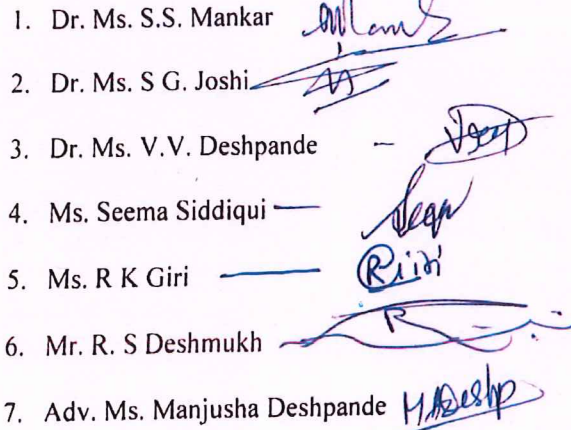 1. Dr. Ms. S.S. Mankar
2. Dr. Ms. S G. Joshi
3. Dr. Ms. V.V. Deshpande –
4. Ms. Seema Siddiqui
5. Ms. R K Giri
6. Mr. R. S Deshmukh
7. Adv. Ms. Manjusha Deshpande